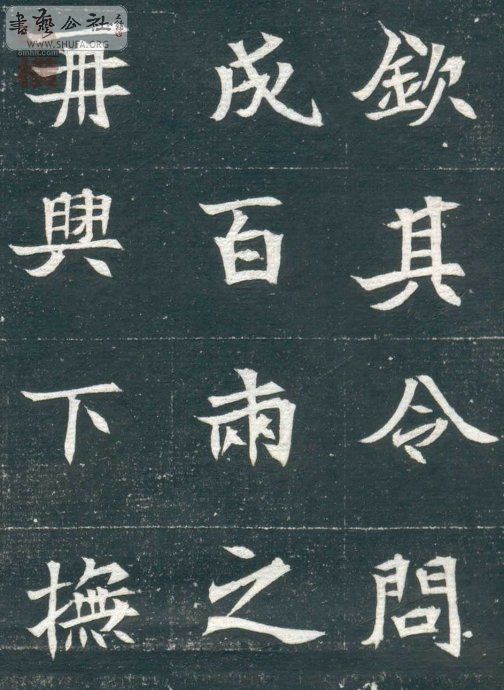 書藝公社
WWW.SHUFA.ORG
欽其令問
成百兩之
再興下撫